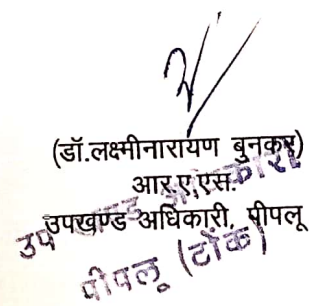 (डॉ.लक्ष्मीनारायण बुनकर)
आर.ए.एस.
उपखण्ड अधिकारी, पीपलू
उप खण्ड अधिकारी
पीपलू (टोंक)